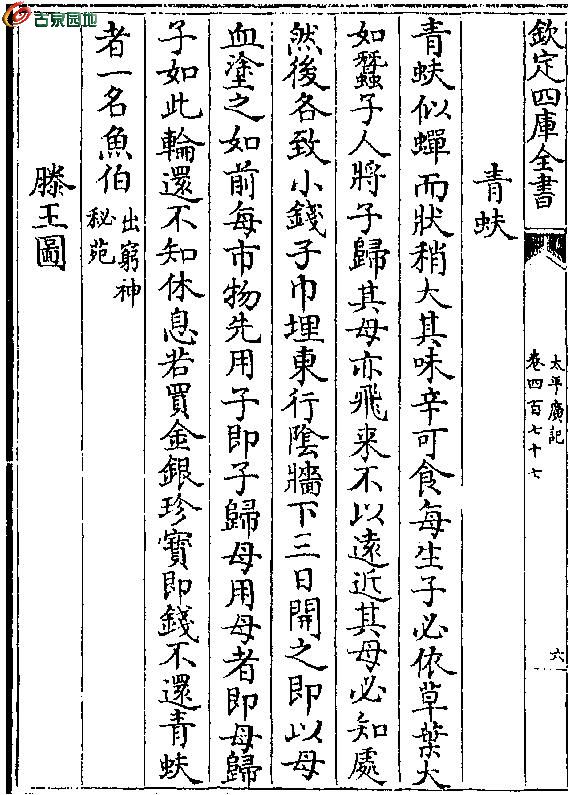 古泉园地
欽定四庫全書
太平廣記
卷四百七十七
六
青蚨
青蚨似蟬而狀稍大其味辛可食每生子必依草葉大
如蠶子人將子歸其母亦飛来不以遠近其母必知處
然後各致小錢子巾埋東行隂牆下三日開之即以母
血塗之如前每市物先用子即子歸母用母者即母歸
子如此輪還不知休息若買金銀珍寶即錢不還青蚨
者一名魚伯出窮神
秘苑
滕王圖